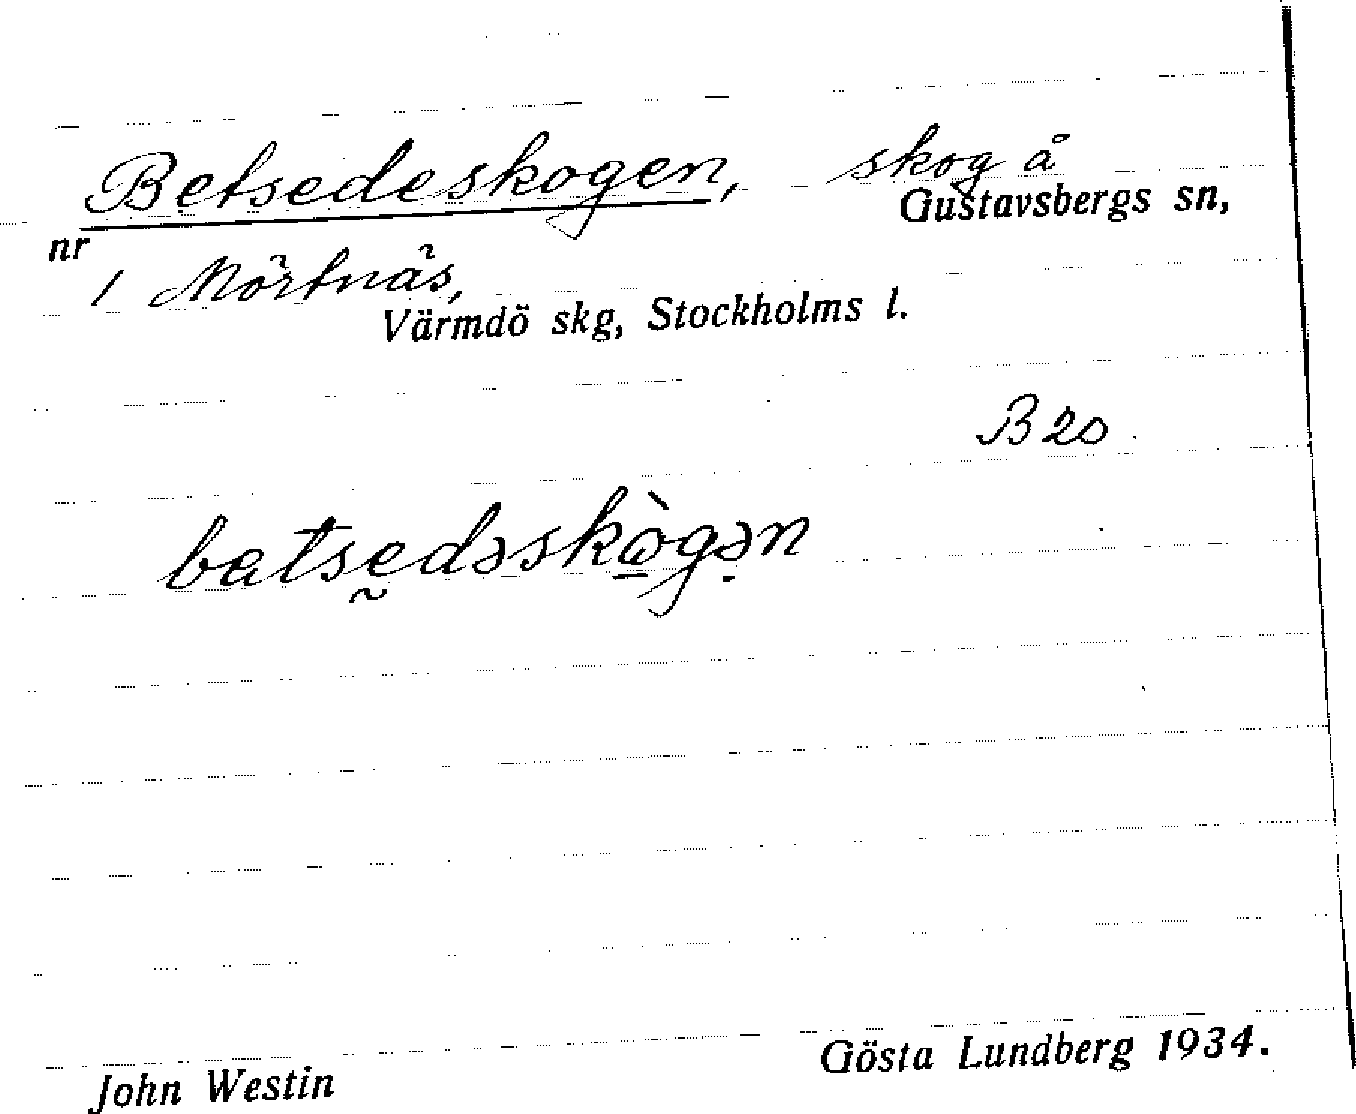 Betsedeskogen, skog å
Gustavsbergs sn,
nr
1 Mörtnäs,
Värmdö skg, Stockholms l.
B 20
batsedəskògən
John Westin
Gösta Lundberg 1934.